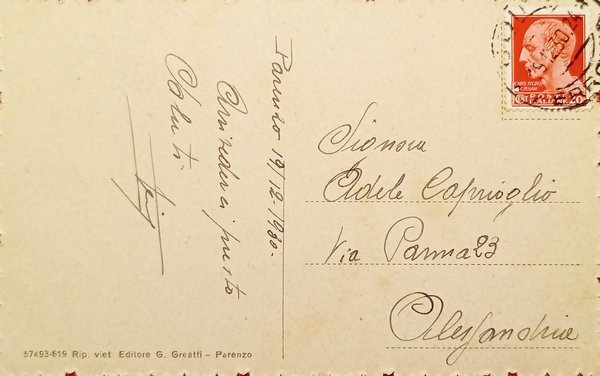 Parenzo 19/12-1930-
Arrivederci presto
Saluti
Signora
Adele Caprioglio
Via Parma 23
Alessandria
POSTE ITALIANE 20
67493-619 Rip. viet Editore G. Greatti - Parenzo